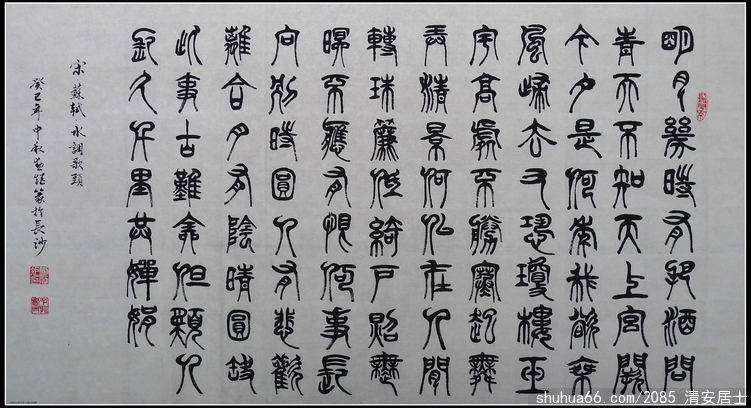 明月幾時有把酒問
青天不知天上宮闕
今夕是何年我欲乘
風歸去又恐瓊樓玉
宇高處不勝寒起舞
弄清景何似在人間
轉珠簾低綺戶照無
眠不應有恨何事長
向別時圓人有悲歡
離合月有陰晴圓缺
此事古難全但願人
長久千里共嬋娟
宋 蘇軾 水調歌頭
癸巳年中秋篆於長沙
shuhua66.com/2085 清安居士